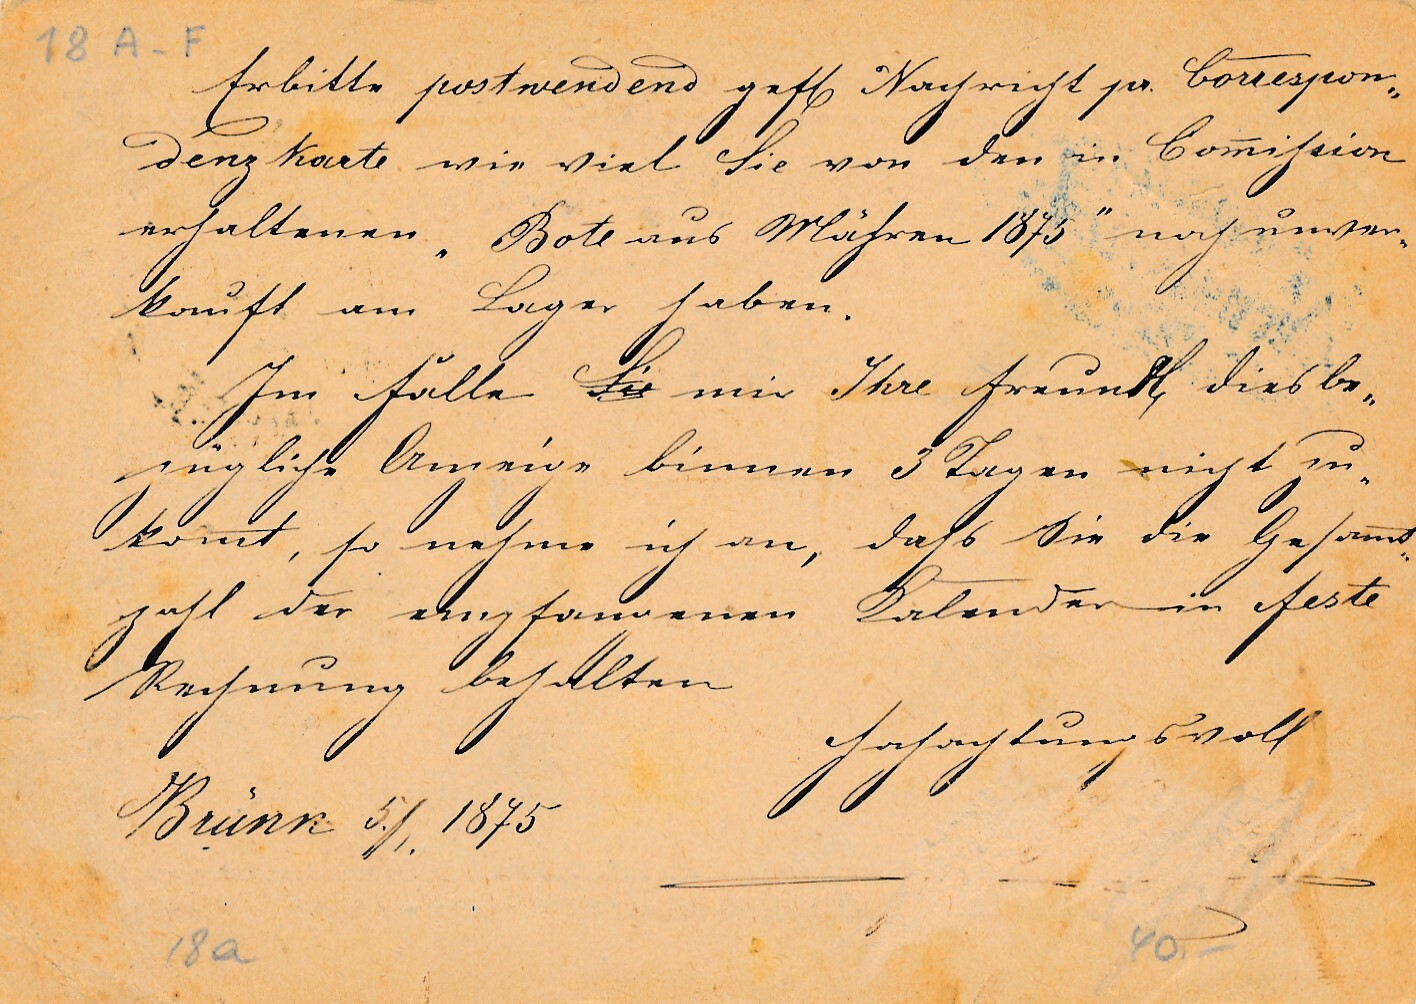 18 A - F
Erbitte postwendend gefl Nachricht pr. Correspon-
denzkarte wie viel Sie von den in Com̅ission
erhaltenen „Bote aus Mähren 1875" noch unver-
kauft am Lager haben.
Im Falle Sie mir Ihre freundl, diesbe-
zügliche Anzeige binnen 3 Tagen nicht zu-
kom̅t, so nehme ich an, dass Sie die Gesam̅t-
zahl der empfangenen Kalender in feste
Rechnung behalten
Hochachtungsvoll
Brünn 5/1. 1875
18a
40.-